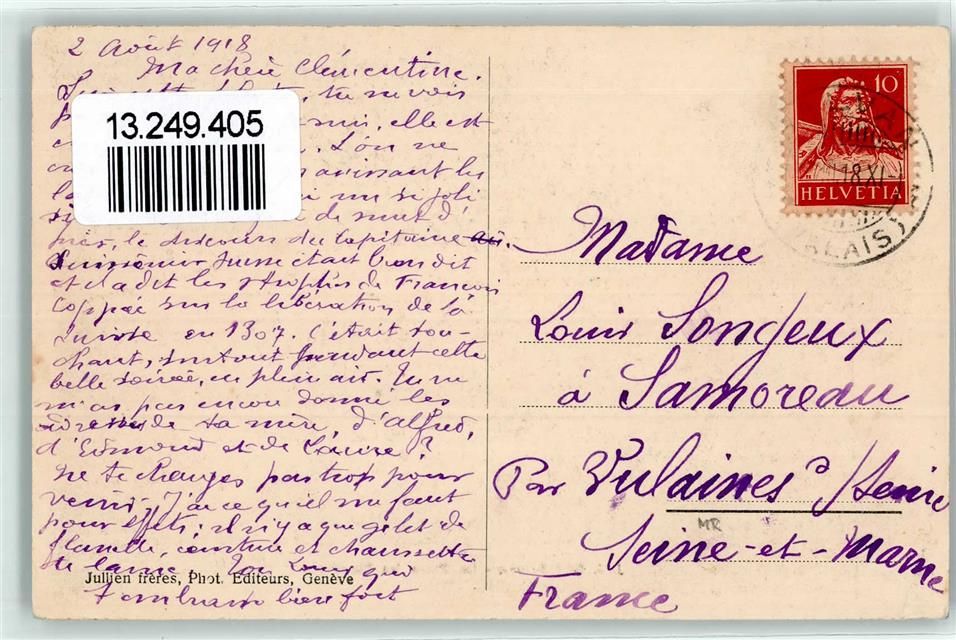 2 Août 1918
Ma chère Clémentine.
tu ne vois
elle est
13.249.405
L'on ne
avisant les
si joli
de nuit d'
le discours du Capitaine
Suisse était bien dit
et il a dit les strophes de François
Coppée sur la libération de la
Suisse en 1307. C'était tou-
chant, surtout pendant cette
belle soirée, en plein air. Tu ne
m'as pas encore donné les
adresses de ta mère, d'Alfred,
d'Edmond et de Louise?
Ne te charges pas trop pour
venir, j'ai ce qu'il me faut
pour effets; il n'y a que gilet de
flanelle, ceinture et chaussettes
de laine. Ton Louis qui
t'embrasse bien fort
Jullien frères, Phot. Editeurs, Genève
10
HELVETIA
18.XI
Madame
Louis Songeux
à Samoreau
Par Vulaines s/Seine
MR
Seine-et-Marne
France